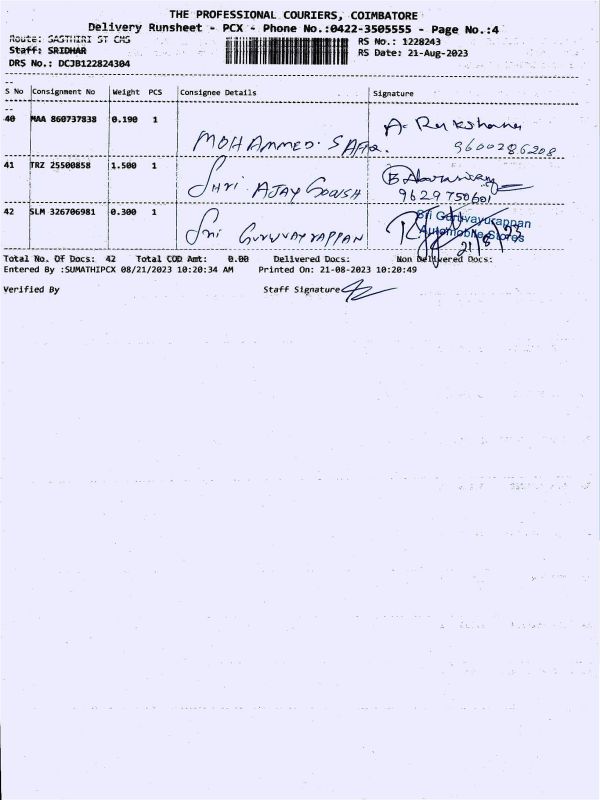 THE PROFESSIONAL COURIERS, COIMBATORE
Delivery Runsheet - PCX - Phone No.:0422-3505555 - Page No.:4
Route: SASTHIRI ST CMS
RS No.: 1228243
Staff: SRIDHAR
RS Date: 21-Aug-2023
DRS No.: DCJB122824304
S No Consignment No Weight PCS Consignee Details Signature
40 MAA 860737838 0.190 1
MOHAMMED. 9600286208
41 TRZ 25500858 1.500 1
Shri AJAY 9629750601
42 SLM 326706981 0.300 1
Sri GURUVAYRAPPAN
Sri Guruvayurappan
Automobile Stores
21/8/23
Total No. Of Docs: 42 Total COD Amt: 0.00 Delivered Docs: Non Delivered Docs:
Entered By :SUMATHIPCX 08/21/2023 10:20:34 AM Printed On: 21-08-2023 10:20:49
Verified By Staff Signature